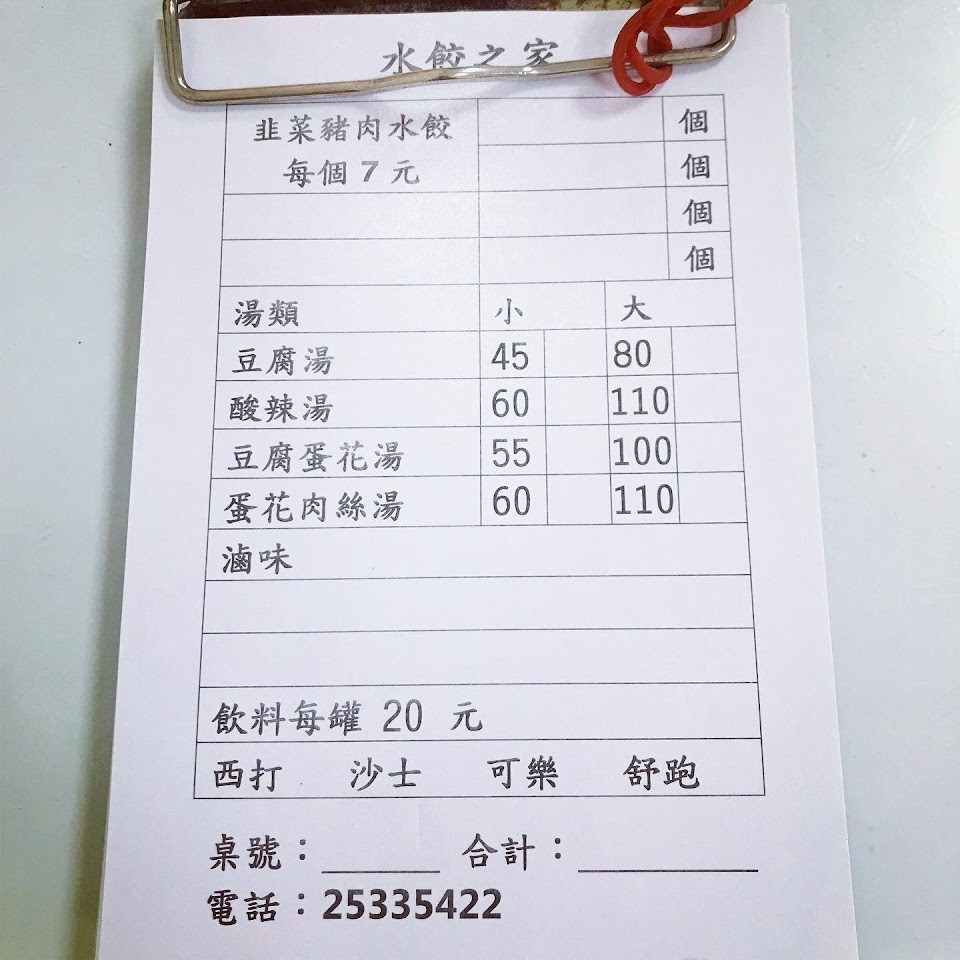 水餃之家
韭菜豬肉水餃 個
每個 7 元 個
個
個
湯類 小 大
豆腐湯 45 80
酸辣湯 60 110
豆腐蛋花湯 55 100
蛋花肉絲湯 60 110
滷味
飲料每罐 20 元
西打 沙士 可樂 舒跑
桌號：______ 合計：_________
電話：25335422